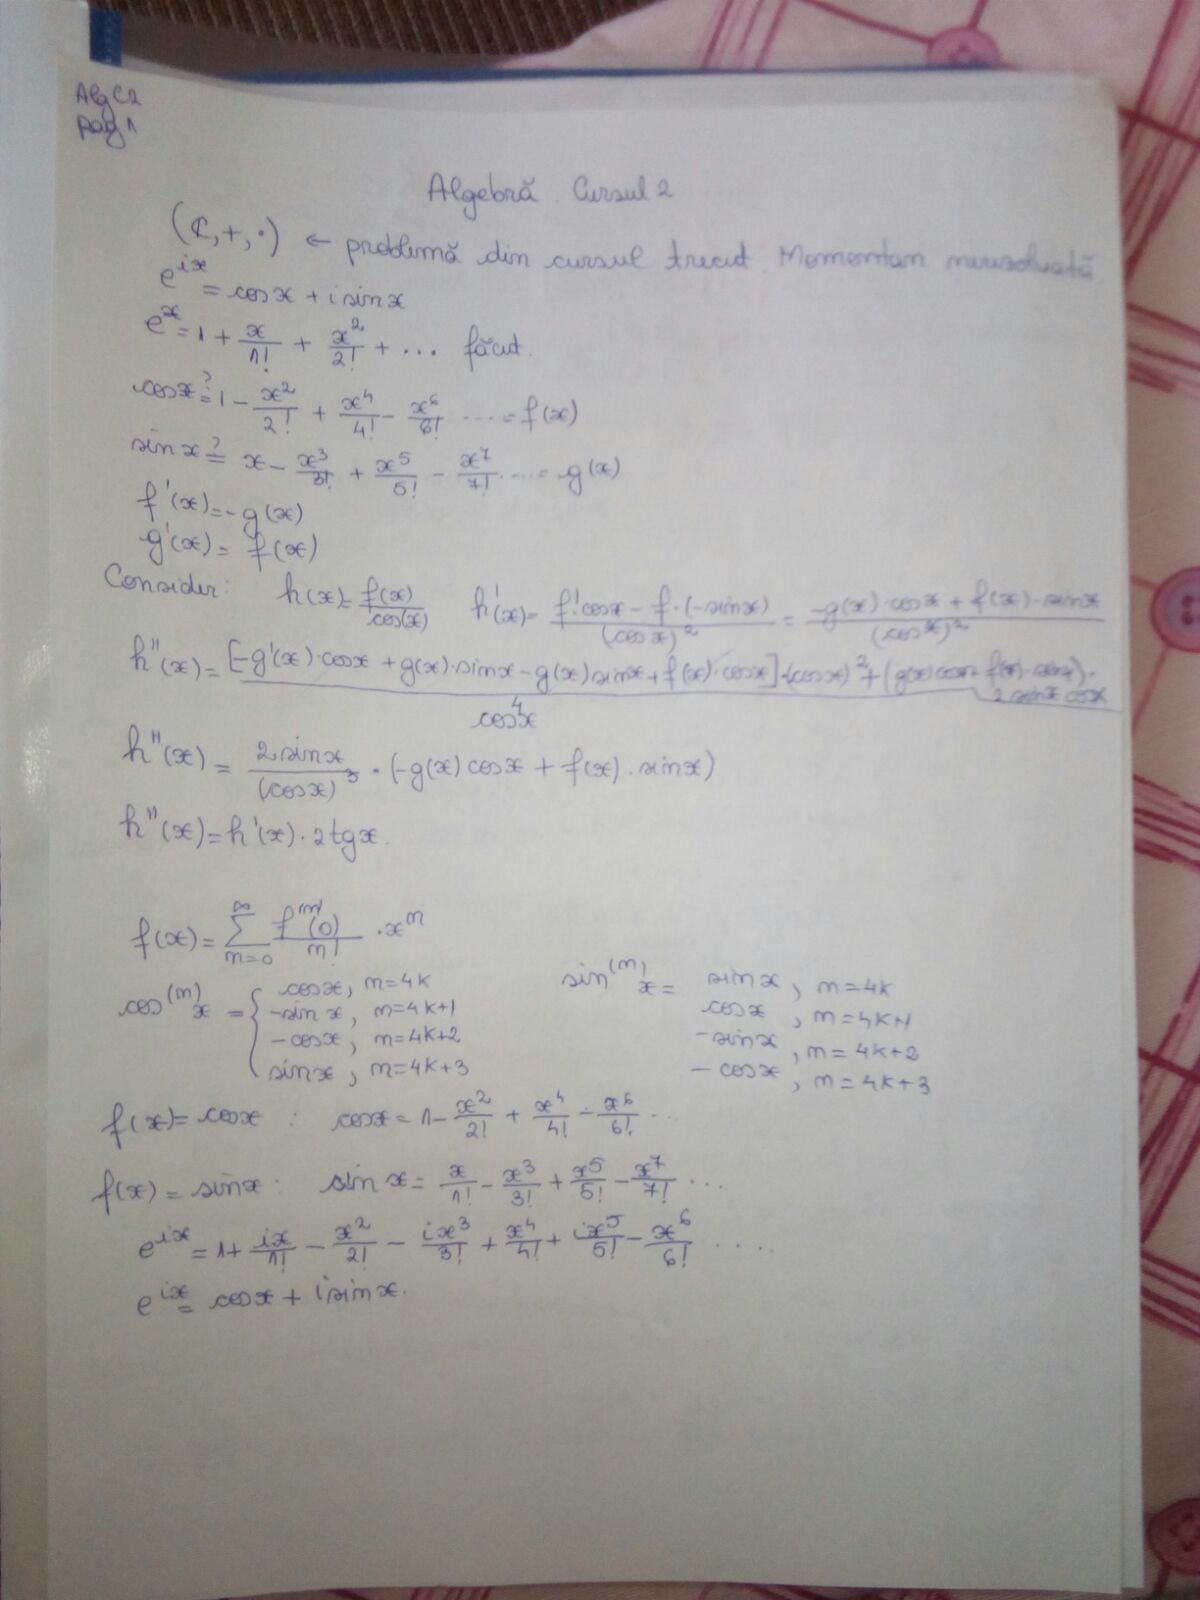 Alg C2
pag 1
Algebră Cursul 2
(ℂ,+,·) ← problemă din cursul trecut. Momentan nerezolvată.
e^{ix} = cosx + i sinx
e^x = 1 + x/1! + x²/2! + ... făcut.
cosx ?= 1 - x²/2! + x⁴/4! - x⁶/6! .... = f(x)
sinx ?= x - x³/3! + x⁵/5! - x⁷/7! .... = g(x)
f'(x) = -g(x)
g'(x) = f(x)
Consider: h(x) = f(x)/cos(x) h'(x) = (f'·cosx - f·(-sinx))/(cosx)² = (-g(x)·cosx + f(x)·sinx)/(cosx)²
h''(x) = ([-g'(x)·cosx + g(x)·sinx - g(x)sinx + f(x)·cosx]·(cosx)² + (g(x)cosx f(x)·sinx)· 2sinx cosx)/cos⁴x
h''(x) = 2sinx/(cosx)³ · (-g(x)cosx + f(x)·sinx)
h''(x) = h'(x)·2tgx.
f(x) = ∑_{n=0}^{∞} f^{(n)}(0)/n! · x^n
cos^{(n)}x = { cosx, n=4k sin^{(n)}x = sinx, n=4k
-sinx, n=4k+1 cosx, n=4k+1
-cosx, n=4k+2 -sinx, n=4k+2
sinx, n=4k+3 -cosx, n=4k+3
f(x) = cosx : cosx = 1 - x²/2! + x⁴/4! - x⁶/6! ...
f(x) = sinx : sinx = x/1! - x³/3! + x⁵/5! - x⁷/7! ...
e^{ix} = 1 + ix/1! - x²/2! - ix³/3! + x⁴/4! + ix⁵/5! - x⁶/6! ....
e^{ix} = cosx + i sinx.